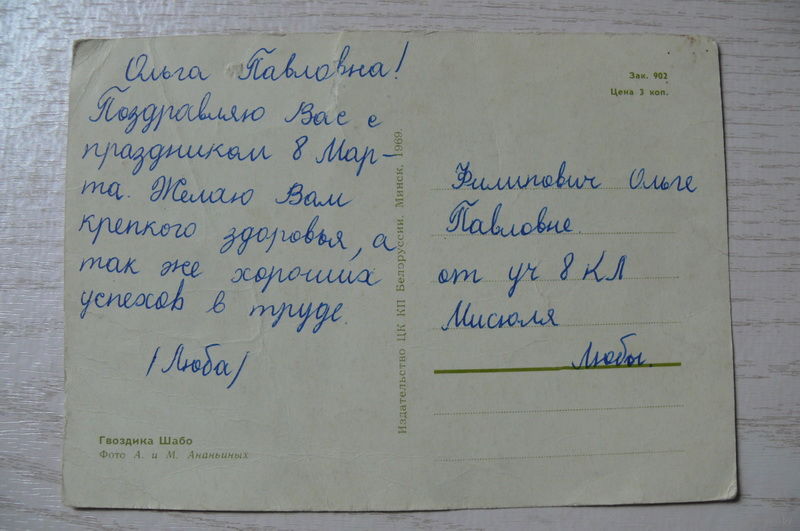 Ольга Павловна!
Поздравляю Вас с
праздником 8 Мар-
та. Желаю Вам
крепкого здоровья, а
так же хороших
успехов в труде.
/Люба/
Гвоздика Шабо
Фото А. и М. Ананьиных
Издательство ЦК КП Белоруссии. Минск, 1969.
Зак. 902
Цена 3 коп.
Филипович Ольге
Павловне.
от уч 8 КЛ
Мисюля
Любы.